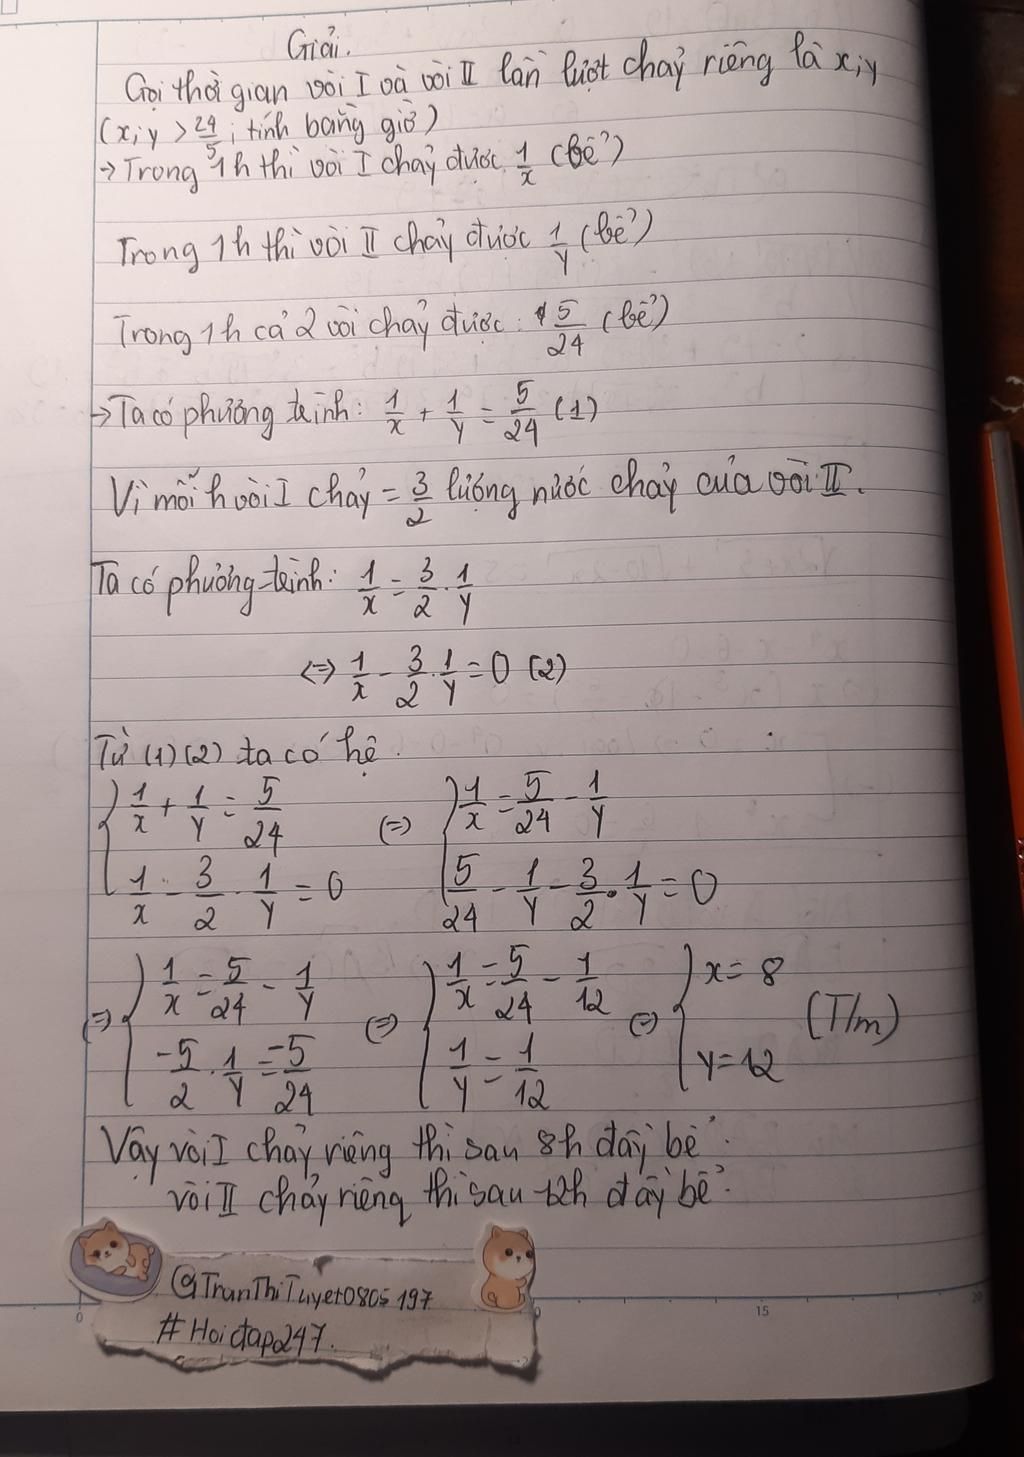 Giải.
Gọi thời gian vòi I và vòi II lần lượt chảy riêng là x; y
(x; y > 24/5; tính bằng giờ)
→ Trong 1h thì vòi I chảy được 1/x (bể)
Trong 1h thì vòi II chảy được 1/y (bể)
Trong 1h cả 2 vòi chảy được: 5/24 (bể)
→ Ta có phương trình: 1/x + 1/y = 5/24 (1)
Vì mỗi h vòi I chảy = 3/2 lượng nước chảy của vòi II.
Ta có phương trình: 1/x = 3/2 . 1/y
<=> 1/x - 3/2 . 1/y = 0 (2)
Từ (1) (2) ta có hệ.
{ 1/x + 1/y = 5/24 (=) { 1/x = 5/24 - 1/y
1/x - 3/2 . 1/y = 0 5/24 - 1/y - 3/2 . 1/y = 0
(=) { 1/x = 5/24 - 1/y (=) { 1/x = 5/24 - 1/12 (=) { x = 8 (T/m)
-5/2 . 1/y = -5/24 1/y = 1/12 y = 12
Vậy vòi I chảy riêng thì sau 8h đầy bể.
vòi II chảy riêng thì sau 12h đầy bể.
@TranThiTuyet0805197
#Hoidap247.
0 15 20